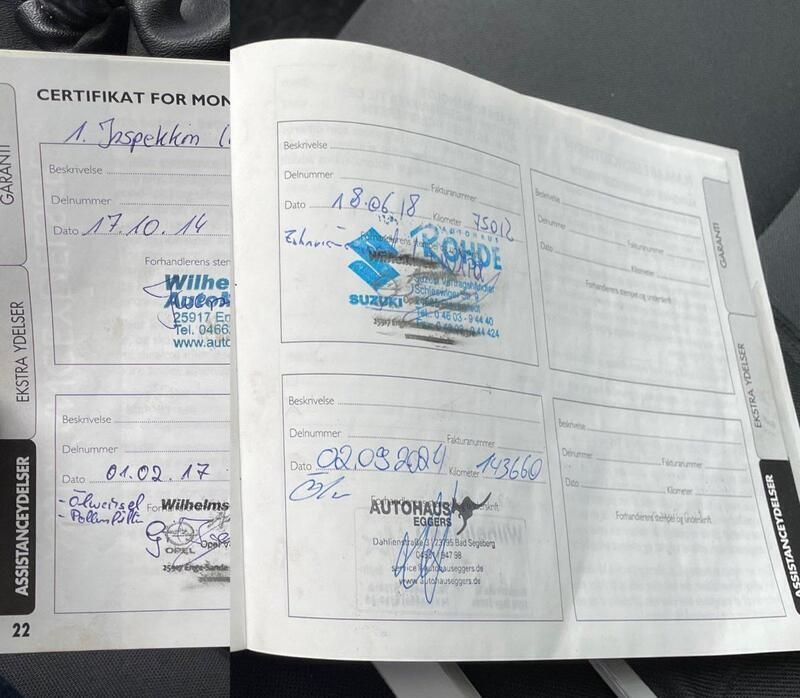 CERTIFIKAT FOR MON
1. Inspektion
Beskrivelse
Delnummer
Dato 17.10.14
Forhandlerens stem
Wilhe
25917 En
Tel. 0466
www.auto
Beskrivelse
Delnummer
Dato 01.02.17
- Ölwechsel
- Pollenfilter
For
Wilhelms
OPEL
Opel
25917 Enge-Sande
22
GARANTI
EKSTRA YDELSER
ASSISTANCEYDELSER
Beskrivelse
Delnummer
Fakturanummer
Dato 18.06.18 Kilometer 75012
Forhandlerens stempel
AUTOHAUS
ROHDE
SUZUKI
Suzuki Vertragshändler
Schleswiger Str. 9
Tel. 0 46 03 - 9 44 40
9 44 424
25917 Enge
Beskrivelse
Delnummer
Fakturanummer
Dato 02.09.2024 Kilometer 143660
AUTOHAUS
EGGERS
Dahlienstraße 3 | 23795 Bad Segeberg
service@autohauseggers.de
www.autohauseggers.de
Beskrivelse
Delnummer
Fakturanummer
Dato
Kilometer
Forhandlerens stempel og underskrift
Beskrivelse
Delnummer
Fakturanummer
Dato
Kilometer
Forhandlerens stempel og underskrift
GARANTI
EKSTRA YDELSER
ASSISTANCEYDELSER